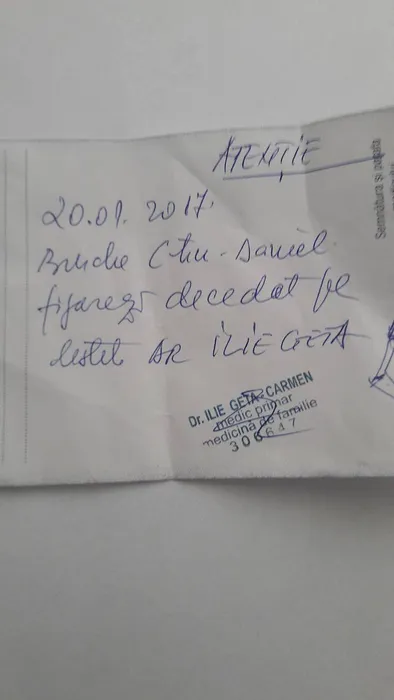 ATENȚIE
20.01. 2017.
Daniel
figurează decedat pe
listele DR ILIE GETA
Dr. ILIE GETA-CARMEN
medic primar
medicina de familie
306617
Semnătura și parafa